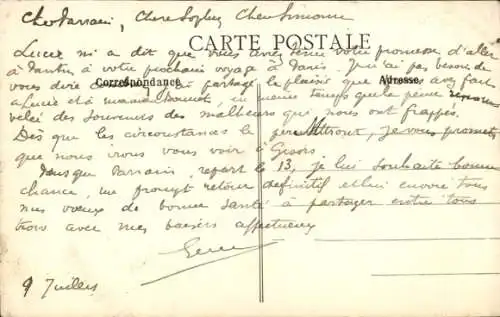 Cher Parrain, Chère Sophie, Cher Simonne
Lucie m'a dit que vous avez tenu votre promesse d'aller
CARTE POSTALE
à Pantin à votre prochain voyage à Paris. Je n'ai pas besoin de
vous dire partagé le plaisir que avez fait
Correspondance
Adresse
à Lucie et à maman, en même temps que la peine
des souvenirs des malheurs qui nous ont frappés.
Dès que les circonstances le permettront, je vous promets
que nous irons vous voir à Gisors
Puisque Parrain, repart le 13, je lui souhaite bonne
chance, un prompt retour définitif et lui envoie tous
mes voeux de bonne santé à partager entre tous
trois avec mes baisers affectueux
9 Juillet